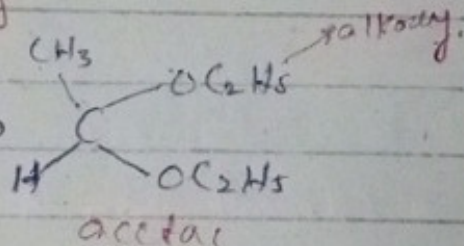 CH3
OC2H5
alkoxy.
C
H
OC2H5
acetal